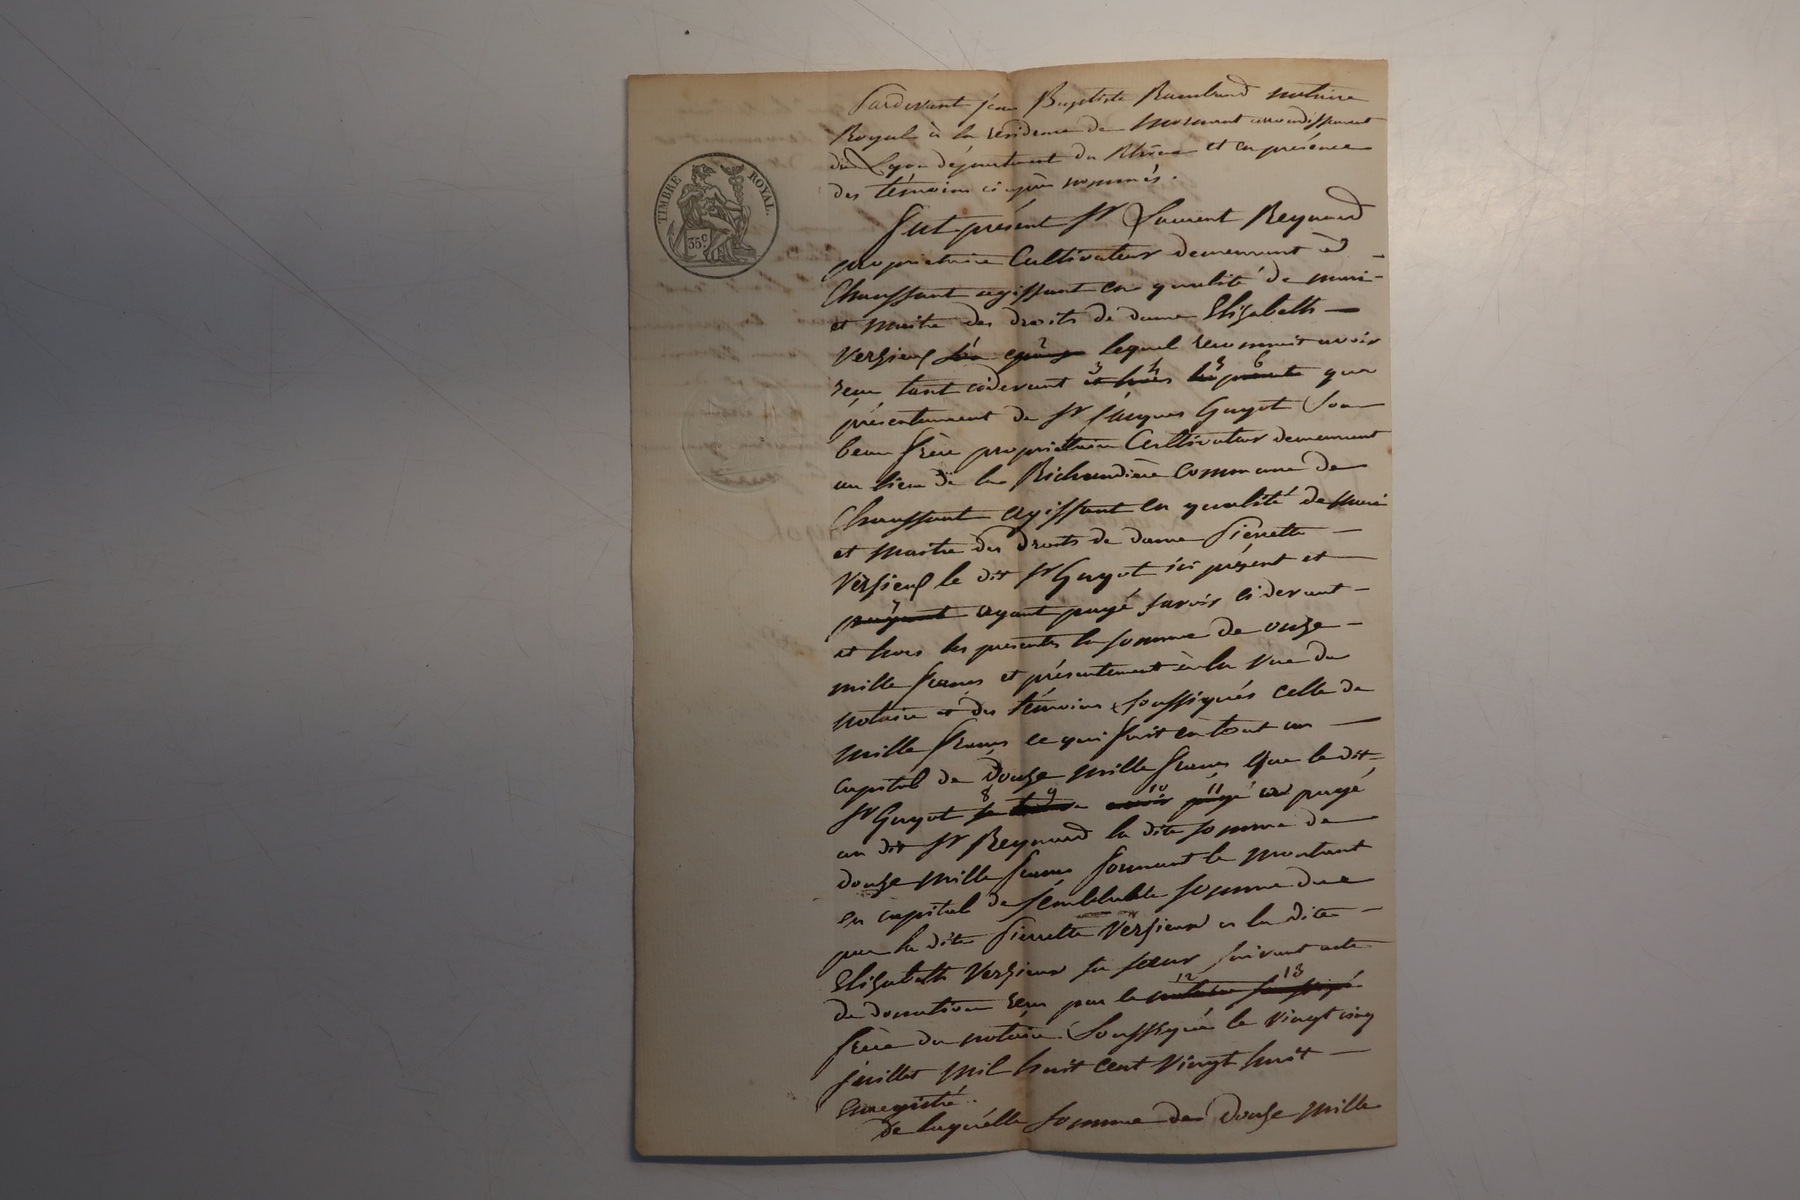 TIMBRE ROYAL.
35 c.
Pardevant jean Baptiste Rambaud notaire
Royal à la résidence de Mornant arrondissement
de Lyon département du Rhône et en présence
des témoins ci après nommés.
Fut présent Sr Laurent Reynard
propriétaire Cultivateur demeurant à
Chaussant agissant en qualité de mari
et maitre des droits de dame Elizabeth
Verzieux lequel reconnait avoir
reçu tant cidevant 3 et 4 hors 5 les 6 présentes que
présentement de Sr Jacques Guyot Son
beau frère propriétaire Cultivateur demeurant
au lieu de la Richaudière Commune de
Chaussant agissant en qualité de mari
et maitre des droits de dame Pierrette
Verzieux le dit Sr Guyot ici présent et
7 payant ayant payé savoir cidevant
et hors les présentes la somme de onze
mille francs et présentement à la vue du
notaire et des témoins soussignés celle de
mille francs ce qui fait en tout un
capital de douze mille francs que le dit
Sr Guyot 8 9 10 avoir 11 payé a payé
au dit Sr Reynard la dite somme de
douze mille francs formant le montant
en capital de semblable somme due
par la dite Pierrette Verzieux à la dite
Elizabeth Verzieux sa sœur suivant acte
de donation reçu par le 12 notaire 13 soussigné
frère du notaire Soussigné le vingt cinq
juillet mil huit cent vingt huit
Enregistré.
de laquelle somme de douze mille